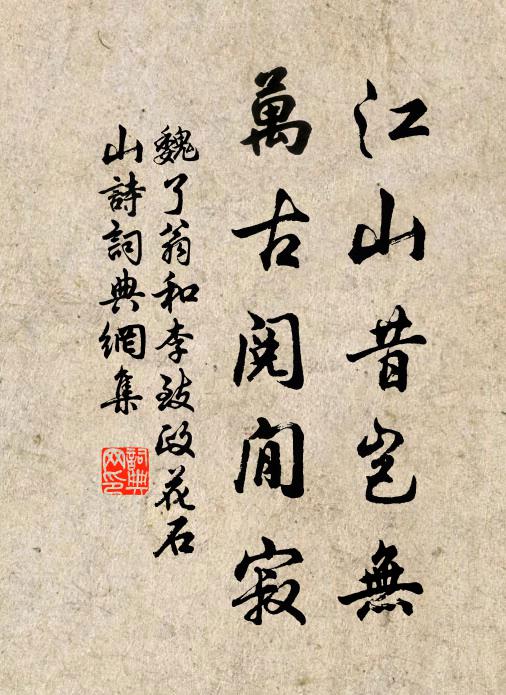 江山昔岂無
萬古閱閒寂
魏了翁和李致政花石
山詩詞典網集
詞典网印